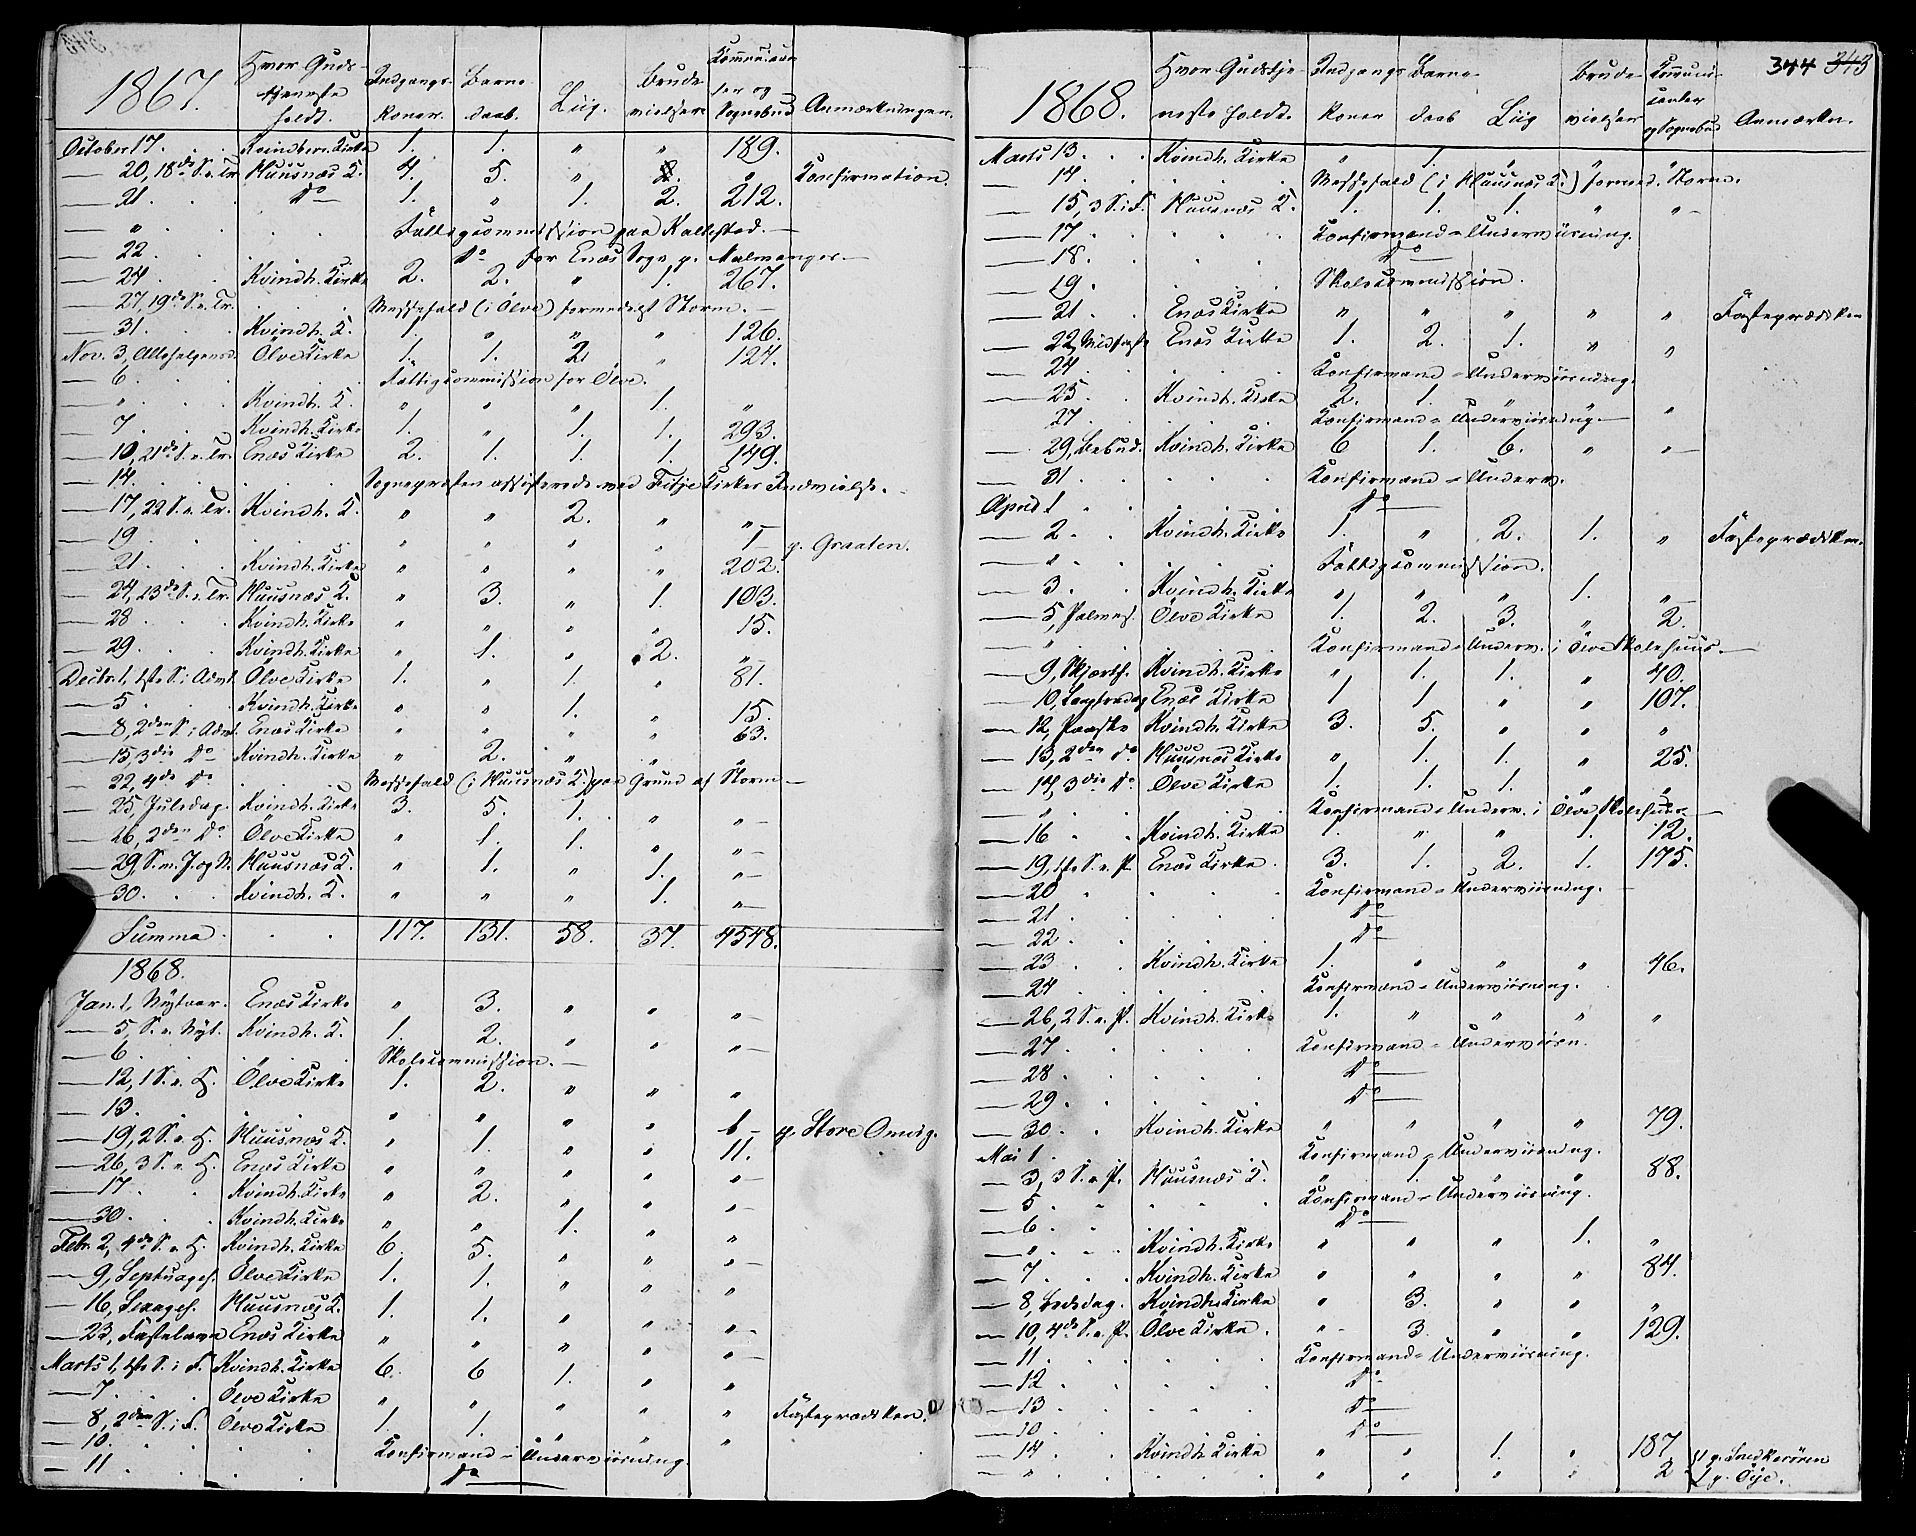 1867. Hvor Gudstjeneste holdt. Indgangskoner. Barnedaab. Liig. Brudevielser. Anmærkninger.
October 17. . . Kvindherr. Kirke 1. 1. " " 189.
— 20, 18de S. e. Tr. Huusnæs K. 4. 5. " " Konfirmation.
— 21. . . Do 1. " 1. 2. 212.
— " . . . . Fattigcommission paa Kaltestad. —
— 22 . . . . Do for Enæs Sogn p. Malmanger. —
— 24 . . Kvindh. Kirke 2. 2. " 1. 267.
— 27, 19de S. e. Tr. . . Messefald (i Ölve) formedelst Storm. —
— 31. . . Kvindh. K. 1. " " " 126.
Nov. 3, Allehelgensd. Ölve Kirke 1. 1. 2. " 127.
— 6 . . . . Fattigcommission for Ölve.
— " . . Kvindh. K. " " " 1. "
— 7 . . Kvindh. Kirke 1. " 1. 1. 293.
— 10, 21de S. e. Tr. Enæs Kirke 2. 1. 1. 1. 149.
— 14. . . . . Sognepræsten assisterede ved Fitje Kirkes Indvielse.
— 17, 22 S. e. Tr. Kvindh. K. " " 2. " " —
— 19 . . . . " " " " 1 — p. Graaten.
— 21. . . Kvindh. Kirke " " " " 202.
— 24, 23de S. e. Tr. Huusnæs K. " 3. " 1. 103.
— 28 . . Kvindh. Kirke " " " " 15.
— 29. . . Kvindh. Kirke " 1. " 2. " —
Decbr. 1, 1ste S. i Advt. Ölve Kirke 1. " 1. " 81.
— 5 . . Kvindh. Kirke " " 1. " 15.
— 8, 2den S. i Advt. Enæs Kirke " " " " 63.
— 15, 3die Do Kvindh. Kirke " 2. " " "
— 22, 4de Do . . Messefald (i Huusnæs K.) paa Grund af Storm —
— 25, Juledag. Kvindh. Kirke 3. 5. 1. " " —
— 26, 2den Do Ölve Kirke " 1. 1. " " —
— 29, S. m. J. og N. Huusnæs K. " 1. " 1. " —
— 30. . . Kvindh. K. " " " 1. " —
Summa . . . 117. 131. 58. 37. 4548.
1868.
Jan. 1, Nytaar. Enæs Kirke " 3. " " " —
— 5, S. e. Nyt. Kvindh. K. 1. 2. " " " —
— 6 . . . . Skolecommission. —
— 12, 1 S. e. H. Ölve Kirke 1. 2. " " "
— 13. . . . . " " " " 1 — p. Store Omvig.
— 19, 2 S. e. H. Huusnæs K. " 1. " " 11.
— 26, 3 S. e. H. Enæs Kirke " " " " " —
— 17 . . Kvindh. Kirke " 2. " " " —
— 30. . . Kvindh. Kirke " " 1. " "
Febr. 2, 4de S. e. H. Kvindh. Kirke 6. 5. " " " —
— 9, Septuages. Ölve Kirke 1. 1. " " "
— 16, Sexages. Huusnæs K. 1. 1. " " "
— 23, Fastelavn Enæs Kirke " " " " " —
Marts 1, 1ste S. i F. Kvindh. Kirke 6. 6 1. " "
— 7. . . Ölve Kirke " " " " " Fasteprædiken.
— 8, 2den S. i F. Ölve Kirke 1. 1. " " "
— 10. . . . .
— 11 . . . . Konfirmand-Underviisning.
Do

344 343
1868. Hvor Gudstjeneste holdt. Indgangskoner Barnedaab Liig Brudevielser Anmærkn.
Marts 13. . . Kvindh. Kirke " 1. " " "
— 14. . . . . Messefald (i Huusnæs K.) formed. Storm.
— 15, 3 S. i F. Huusnæs K. 1. 1. 1. " " —
— 17 . . . . Konfirmand-Underviisning.
— 18. . . . . Do
— 19. . . . . Skolecommission.
— 21. . . Enæs Kirke " " " " " Fasteprædiken
— 22, Midfaste Enæs Kirke 1. 2. 1. " "
— 24 . . . . Konfirmand-Underviisning.
— 25 . . Kvindh. Kirke 2. 1. " " "
— 27 . . . . Konfirmand-Underviisning. —
— 29, Bebud. Kvindh. Kirke 6 1. 6. " " —
— 31 . . . . Konfirmand-Underv.
April 1 . . . . Do
— 2 . . Kvindh. Kirke 1. " 2. 1. " Fasteprædiken.
— " . . . . Fattigcommission.
— 3. . . Kvindh. Kirke " " " 1. " —
— 5, Palmes. Ölve Kirke 1. 2. 3. " 2.
— " . . . . Konfirmand-Underv. i Ölve Skolehuus. —
— 9, Skjærth. Kvindh. Kirke " 1. 1. " 40.
— 10, Langfredag Enæs Kirke 1 1 " " 107.
— 12, Paaske Kvindh. Kirke 3. 5. " " "
— 13, 2den do Huusnæs Kirke " 1. 1. " 25.
— 14, 3die Do Ölve Kirke 1. 1. 1. " "
— " . . . . Konfirmand-Underv. i Ölve Skolehuus —
— 16 . . Kvindh. Kirke 1. " " 1. 12.
— 19, 1ste S. e. P. Enæs Kirke 3. 1. 2. 1. 175.
— 20 . . . . Konfirmand-Underviisning. —
— 21 . . . . Do
— 22 . . . . Do
— 23 . . Kvindh. Kirke 1. " " " 46.
— 24 . . . . Konfirmand-Underviisning.
— 26, 2 S. e. P. Kvindh. Kirke 1. " " " "
— 27 . . . . Konfirmand-Underviisn.
— 28 . . . . Do
— 29 . . . . Do
— 30. . . Kvindh. Kirke " " " " 79.
Mai 1 . . . . Konfirmand-Underviisning.
— 3, 3 S. e. P. Huusnæs K. " 1. " " 88.
— 5 . . . . Konfirmand-Underviisning.
— 6 . . . . Do
— " . . Kvindh. Kirke " " " 1. "
— 7. . . Kvindh. Kirke " " " " 84.
— 8, Bededag. Kvindh. Kirke " 3. " " "
— 10, 4de S. e. P. Ölve Kirke. " 3. " " 129.
— 11. . . . . Konfirmand-Underviisning.
— 12 . . . . Do
— 13 . . . . Do
— 10 . . . . Do
— 14 . . Kvindh. Kirke " " 1. " 187
— " . . . . " " " " 2 1 p. Snedkerören
1 p. Öije.